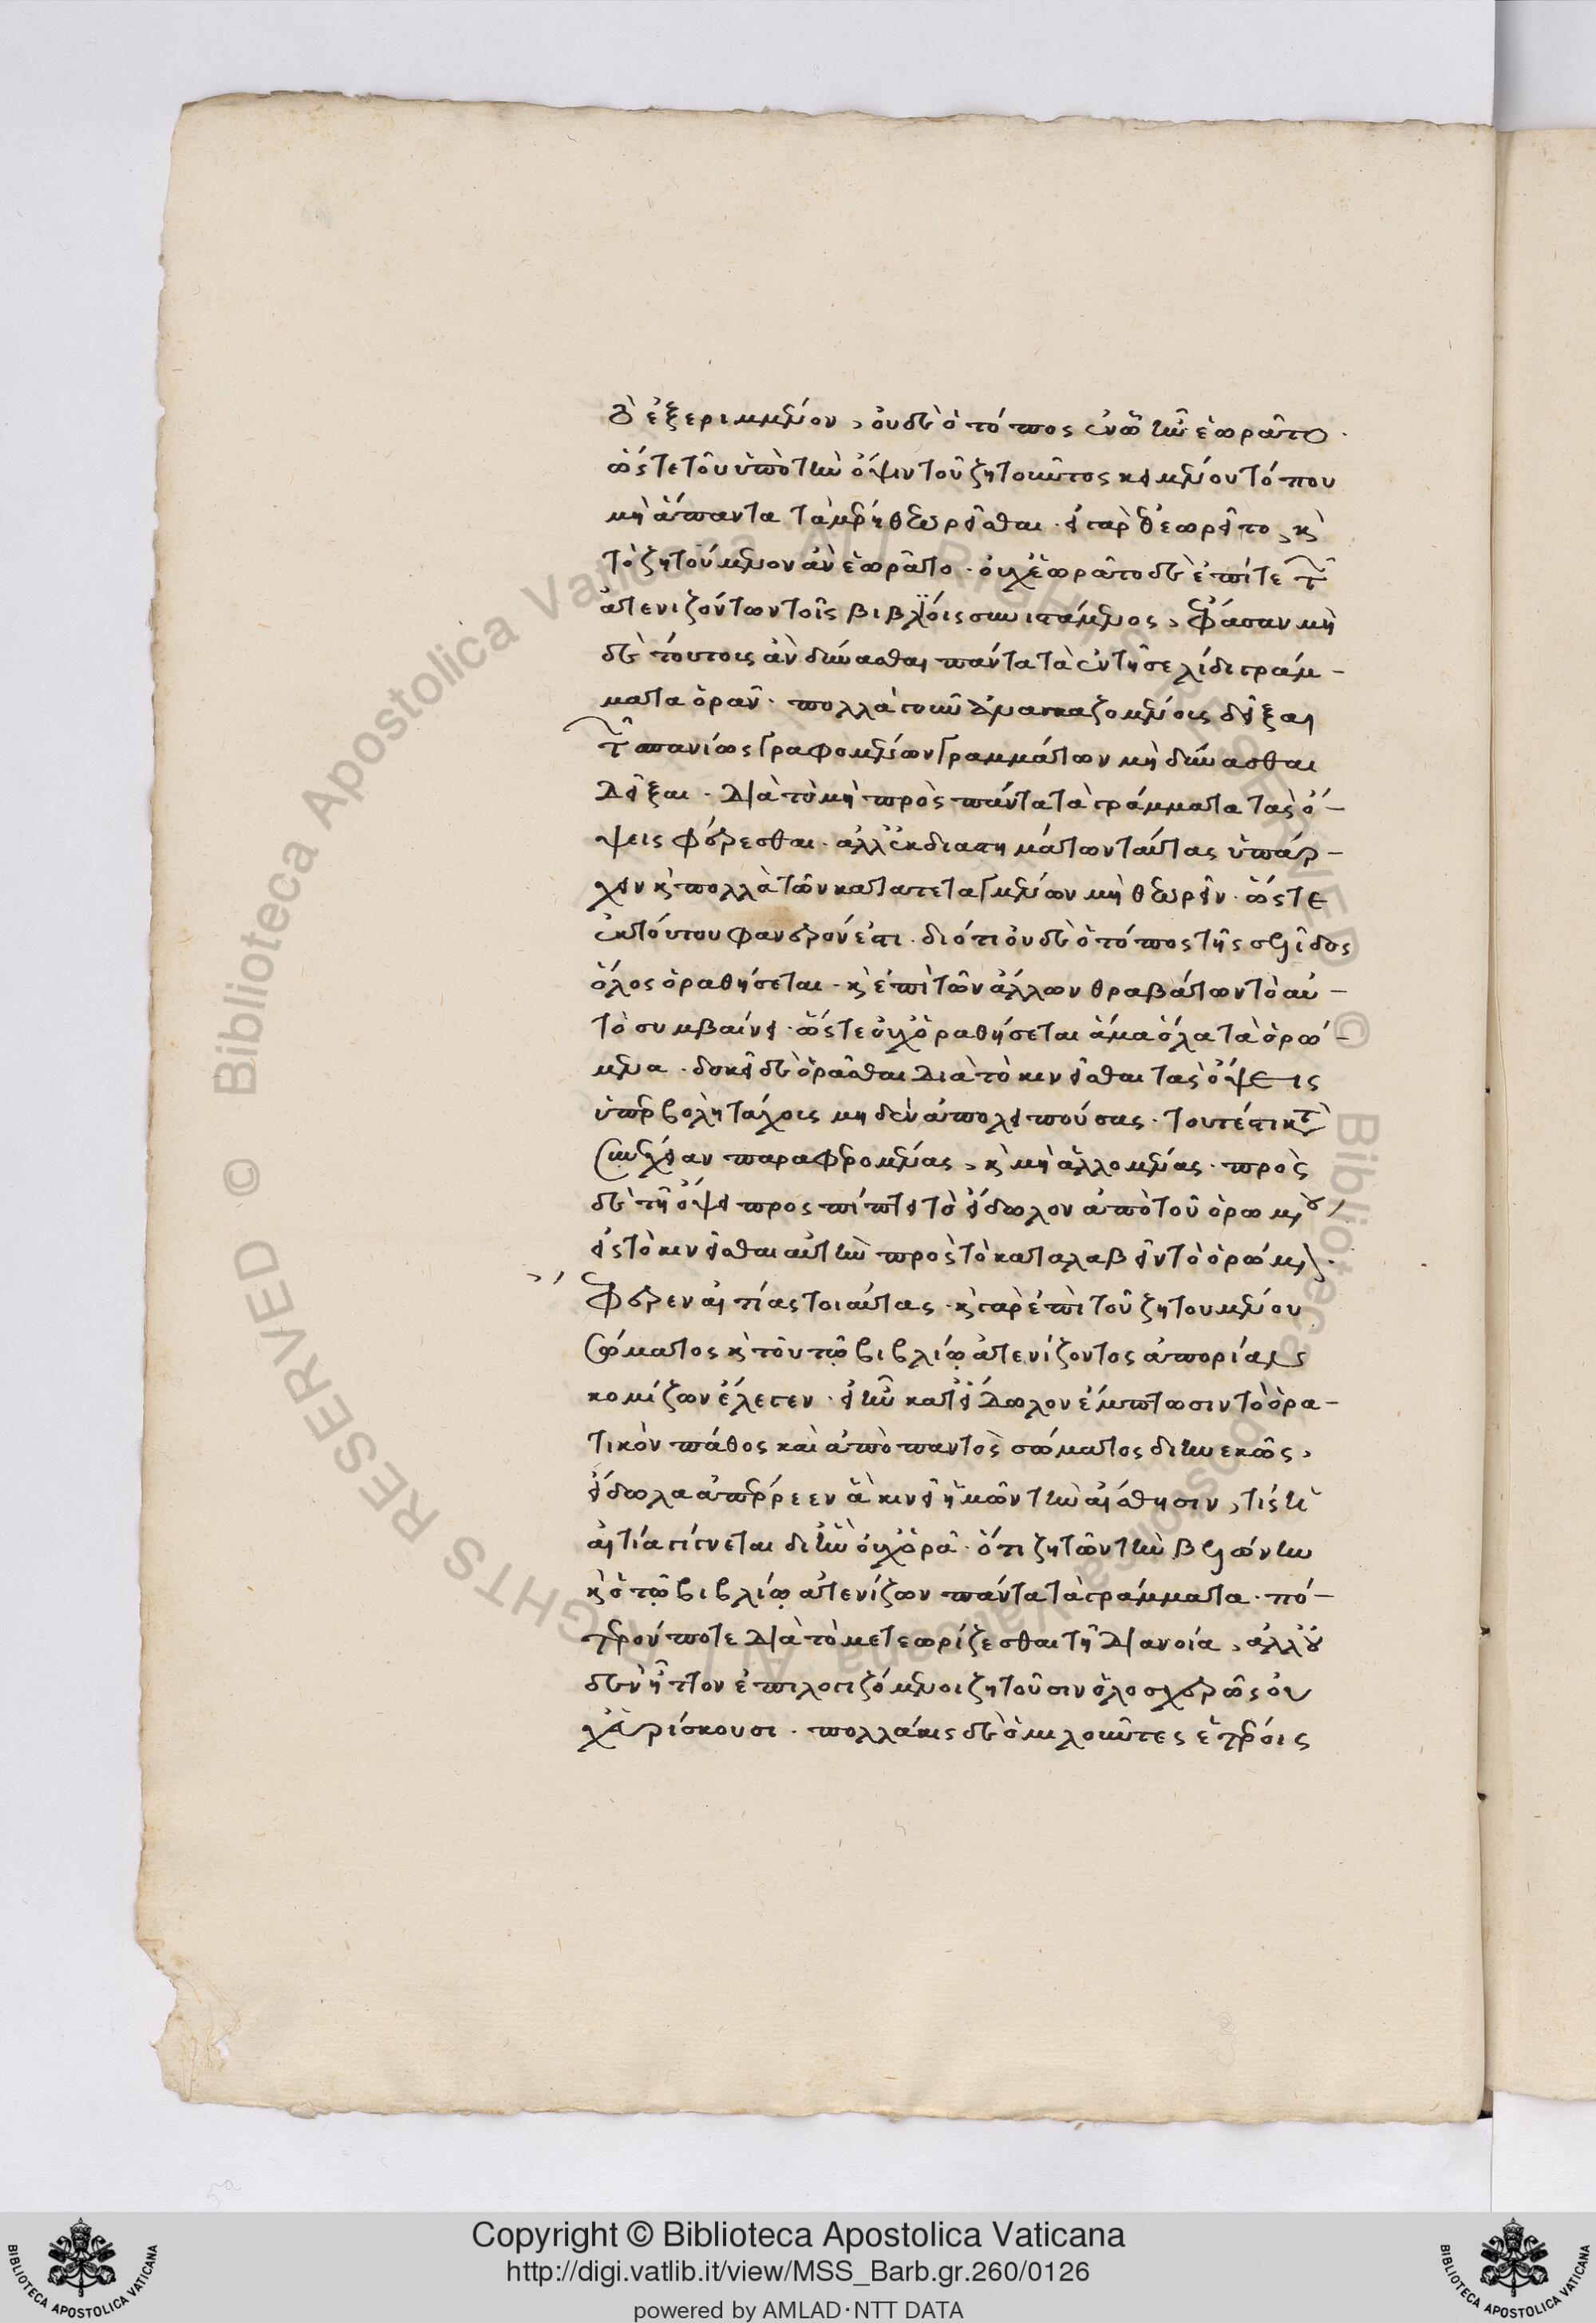 δὲ ἐξεριμμένον, οὐδὲ ὁ τόπος ἐν ᾧ ἦν ἑωρᾶτο.
ὥστε τοῦ ὑπὸ τὴν ὄψιν τοῦ ζητοῦντος κειμένου τόπου
μὴ ἅπαντα τὰ μέρη θεωρεῖσθαι. εἰ γὰρ ἐθεωρεῖτο, καὶ
τὸ ζητούμενον ἂν ἑωρᾶτο. οὐχ ἑωρᾶτο δὲ ἐπί τε τῶν
ἀτενιζόντων τοῖς βιβλίοις συνιστάμενος, ἔφασαν μη
δὲ τούτοις ἂν δύνασθαι πάντα τὰ ἐν τῇ σελίδι γράμ-
ματα ὁρᾶν. πολλάκις γοῦν ἀναγκαζομένοις δεῖξαι
τῶν σπανίως γραφομένων γραμμάτων μὴ δύνασθαι
δεῖξαι. διὰ τὸ μὴ πρὸς πάντα τὰ γράμματα τὰς ὄ-
ψεις φέρεσθαι. ἀλλ' ἐκ διαστημάτων ταύτας ὑπάρ-
χειν καὶ πολλὰ τῶν κατατεταγμένων μὴ θεωρεῖν. ὥστε
ἐκ τούτου φανερόν ἐστι. διότι οὐδὲ ὁ τόπος τῆς σελίδος
ὅλος ὁραθήσεται. καὶ ἐπὶ τῶν ἄλλων θραβάτων τὸ αὐ-
τὸ συμβαίνει. ὥστε οὐχ ὁραθήσεται ἅμα ὅλα τὰ ὁρώ-
μενα. δοκεῖ δὲ ὁρᾶσθαι διὰ τὸ κινεῖσθαι τὰς ὄψεις
ὑπερβολῇ τάχους μηδὲν ἀπολειπούσας. τουτέστι κατὰ
συνέχειαν παραφερομένας, καὶ μὴ ἁλλομένας. πρὸς
δὲ τῇ ὄψει προσπίπτει τὸ εἴδωλον ἀπὸ τοῦ ὁρωμένου
εἰς τὸ κινεῖσθαι αὐτὴν πρὸς τὸ καταλαβεῖν τὸ ὁρώμενον.
ἔφερεν αἰτίας τοιαύτας. καὶ γὰρ ἐπὶ τοῦ ζητουμένου
σώματος καὶ τοῦ τῷ βιβλίῳ ἀτενίζοντος ἀπορίας
κομίζων ἔλεγεν. εἰ ἦν κατ' εἰδώλον ἔμπτωσιν τὸ ὁρα-
τικὸν πάθος καὶ ἀπὸ παντὸς σώματος διηνεκῶς,
εἴδωλα ἀπέρρεεν ἃ κινεῖ ἡμῶν τὴν αἴσθησιν, τίς ἡ
αἰτία γίγνεται δι' ἣν οὐχ ὁρᾷ. ὅτι ζητῶν τὴν βελόνην
καὶ ὁ τῷ βιβλίῳ ἀτενίζων πάντα τὰ γράμματα. πό-
τερόν ποτε διὰ τὸ μετεωρίζεσθαι τῇ διανοίᾳ, ἀλλ' οὐ
δὲν ἧττον ἐπιλογιζόμενοι ζητοῦσιν ὁλοσχερῶς οὐ
χ εὑρίσκουσι. πολλάκις δὲ ὁμιλοῦντες ἑτέροις
Copyright © Biblioteca Apostolica Vaticana
http://digi.vatlib.it/view/MSS_Barb.gr.260/0126
powered by AMLAD·NTT DATA